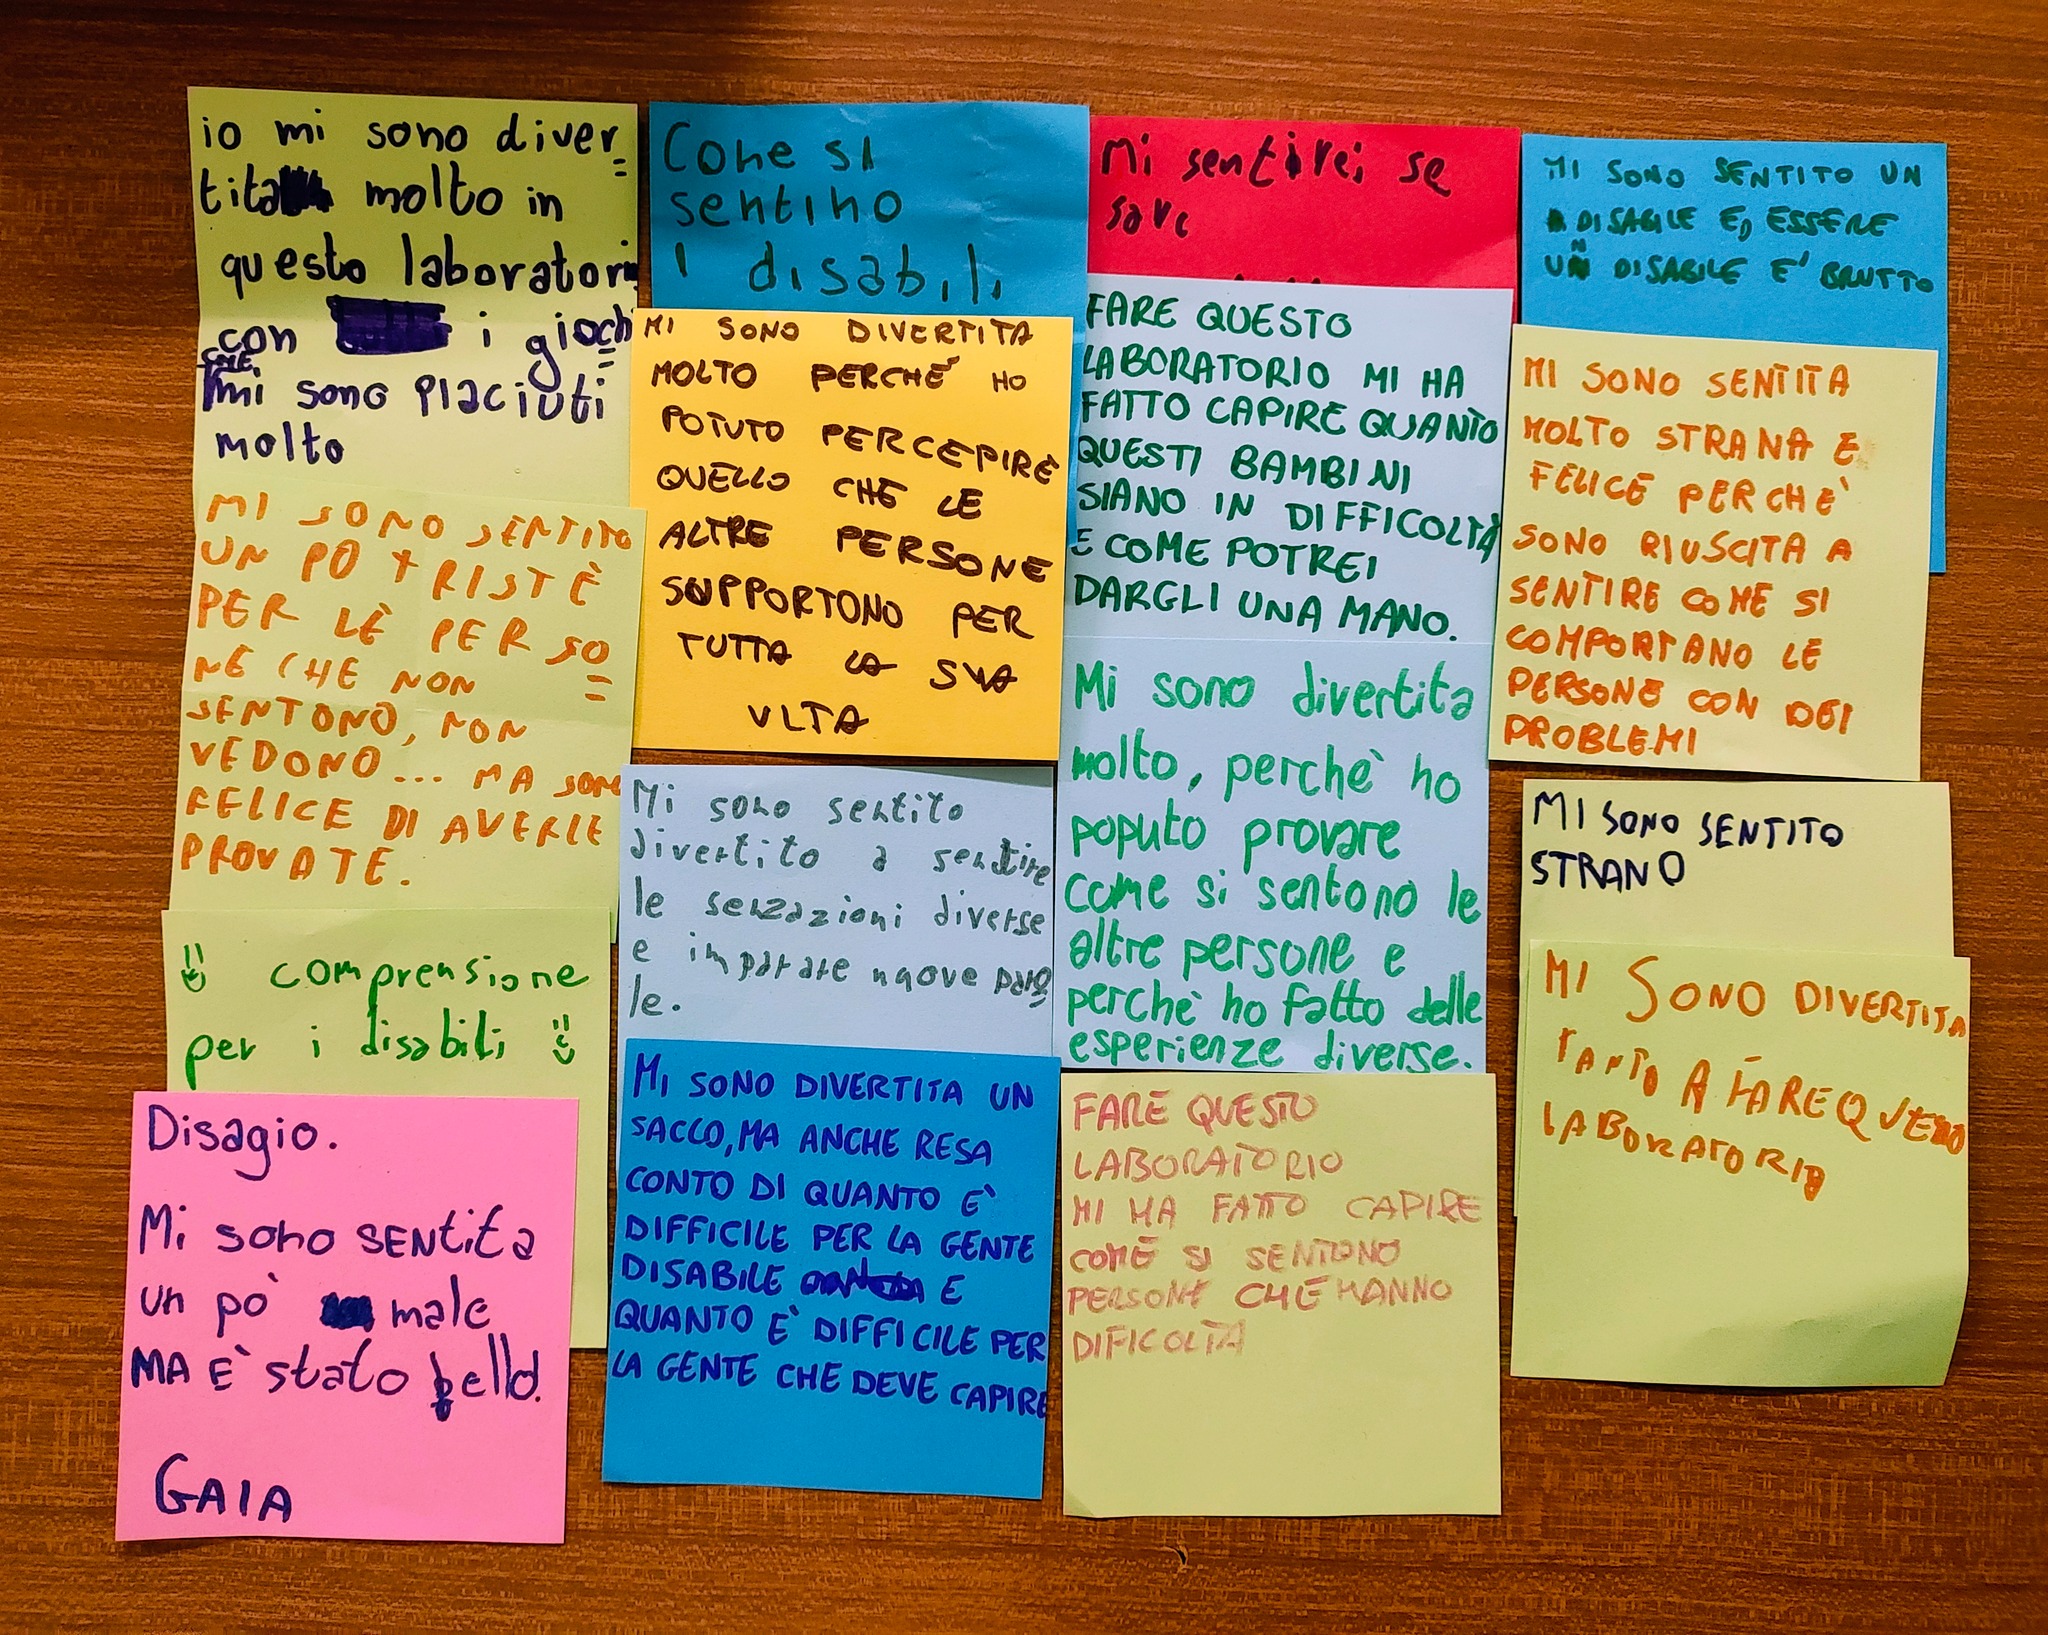 io mi sono diver
tita molto in
questo laboratori
con i giochi
CHE
mi sono piaciuti
molto
MI SONO SENTITO
UN PO TRISTÈ
PER LÈ PERSO
NE CHE NON
SENTONO, NON
VEDONO... MA SONO
FELICE DI AVERLE
PROVATE.
comprensione
per i disabili
Disagio.
Mi sono SENtita
un pò male
MA È stato bello.
GAIA
Come si
sentino
i disabili
MI SONO DIVERTITA
MOLTO PERCHÉ HO
POTUTO PERCEPIRE
QUELLO CHE LE
ALTRE PERSONE
SUPPORTONO PER
TUTTA LA SUA
VITA
Mi sono sentito
divertito a sentire
le senzazioni diverse
e imparare nuove paro
le.
MI SONO DIVERTITA UN
SACCO, MA ANCHE RESA
CONTO DI QUANTO È
DIFFICILE PER LA GENTE
DISABILE E
QUANTO È DIFFICILE PER
LA GENTE CHE DEVE CAPIRE
Mi sentirei se
sare
FARE QUESTO
LABORATORIO MI HA
FATTO CAPIRE QUANTO
QUESTI BAMBINI
SIANO IN DIFFICOLTÀ
E COME POTREI
DARGLI UNA MANO.
Mi sono divertita
molto, perchè ho
poputo provare
come si sentono le
altre persone e
perchè ho fatto delle
esperienze diverse.
FARE QUESTO
LABORATORIO
MI HA FATTO CAPIRE
COME SI SENTONO
PERSONE CHE HANNO
DIFICOLTÀ
MI SONO SENTITO UN
DISAGILE E, ESSERE
UN DISABILE E' BRUTTO
MI SONO SENTITA
MOLTO STRANA E
FELICE PERCHE'
SONO RIUSCITA A
SENTIRE COME SI
COMPORTANO LE
PERSONE CON DEI
PROBLEMI
MI SONO SENTITO
STRANO
MI SONO DIVERTITA
TANTO A FARE QUESTO
LABORATORIO